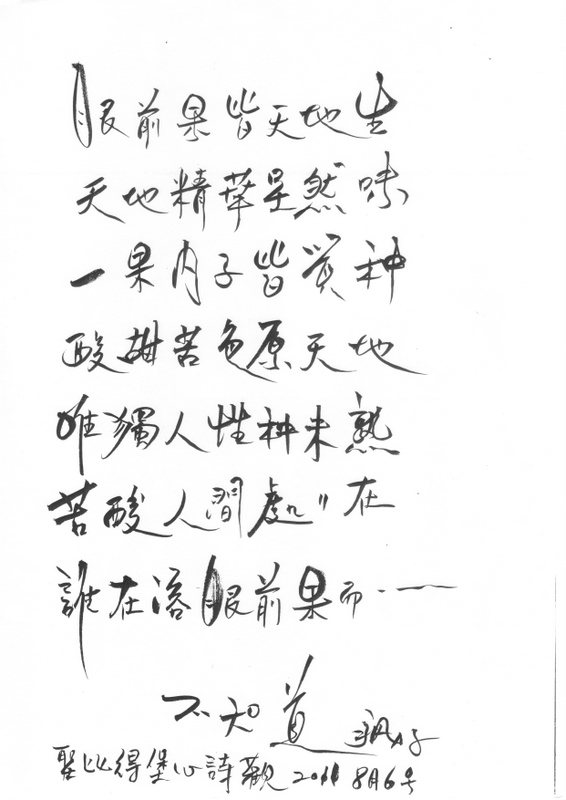 眼前果皆天地生
天地精華呈然味
一果內子皆質种
酸甜苦色原天地
唯獨人性种未熟
苦酸人間處〃在
誰在溶眼前果而……
不知道
聖比得堡心詩觀 2011 8月6号